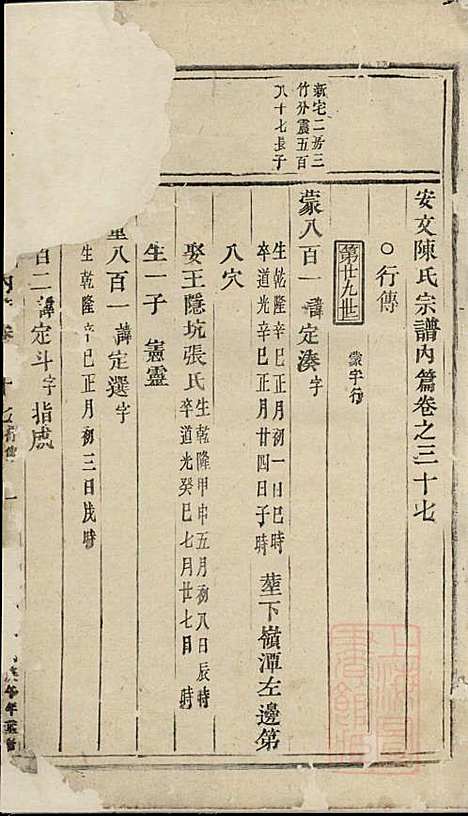 安文陳氏宗譜內篇卷之三十七
○行傳
第廿九世 蒙字行
新宅二房三
竹分震五百
八十七長子
蒙八百一 諱定湊字
生乾隆辛巳正月初一日巳時
卒道光辛巳正月廿四日子時
塟下嶺潭左邊第
八穴
娶王隱坑張氏
生乾隆甲申五月初八日辰時
卒道光癸巳七月廿七日 時
生一子 憲靈
八百一 諱定選字
生乾隆辛巳正月初三日戌時
百二 諱定斗字指處